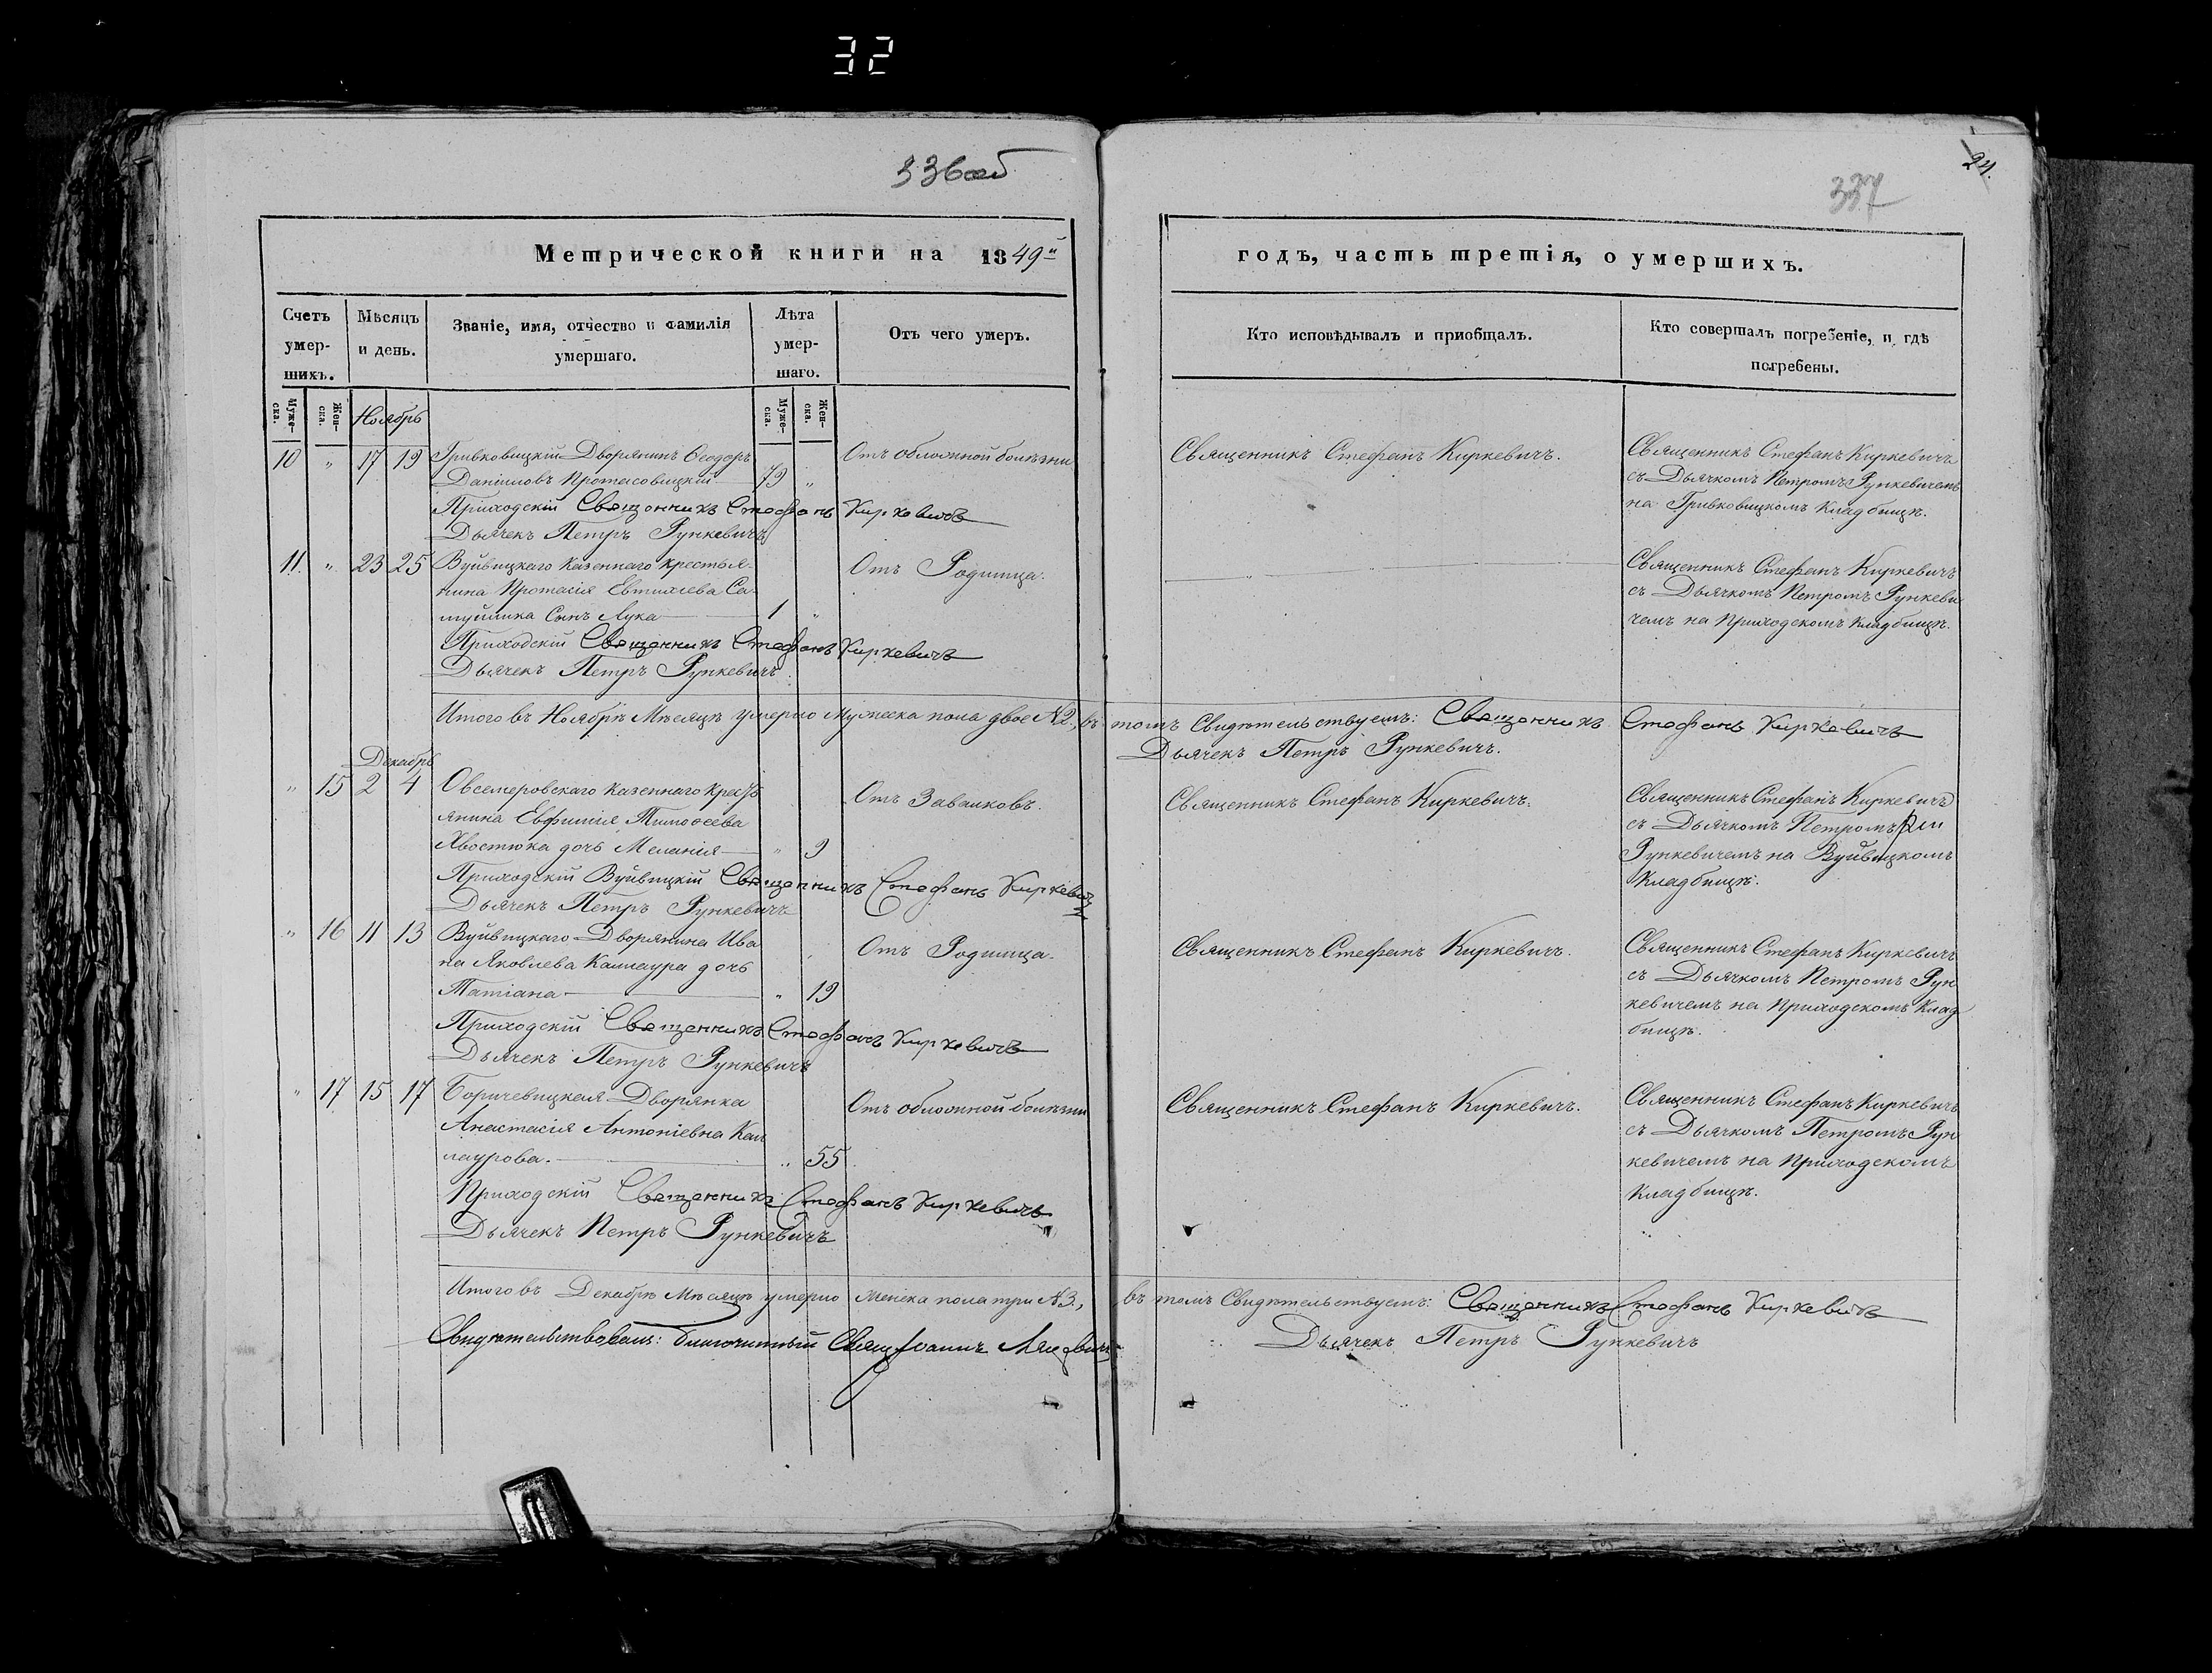 32
336об
24.
337
Метрической книги на 1849й
годъ, часть третія, о умершихъ.
Счетъ умер-шихъ.
Мѣсяцъ и день.
Званіе, имя, отчество и фамилія умершаго.
Лѣта умер-шаго.
Отъ чего умеръ.
Кто исповѣдывалъ и приобщалъ.
Кто совершалъ погребеніе, и гдѣ погребены.
Муже-ска.
Жен-ска.
Муже-ска.
Жен-ска.
Ноябрь
10 " 17 19 Гривковицкій Дворянинъ Ѳеодоръ
Даніиловъ Протасовицкій 79 "
Отъ обложной болѣзни
Священникъ Стефанъ Киркевичъ.
Священникъ Стефанъ Киркевичъ
съ Дьячкомъ Петромъ Рункевичемъ
на Гривковицкомъ Кладбищѣ.
Приходскій Священникъ Стефанъ Киркевичъ
Дьячекъ Петръ Рункевичъ
11. " 23 25 Вуйвицкаго казеннаго крестья-
нина Протасія Евтихіева Са-
муйлика Сынъ Лука 1 "
Отъ Родимца.
Священникъ Стефанъ Киркевичъ
съ Дьячкомъ Петромъ Рункеви
чемъ на Приходскомъ Кладбищѣ.
Приходскій Священникъ Стефанъ Киркевичъ
Дьячекъ Петръ Рункевичъ
Итого въ Ноябрѣ Мѣсяцѣ умерло Мужеска пола двое №2., въ томъ Свидѣтельствуемъ: Священникъ Стефанъ Киркевичъ
Дьячекъ Петръ Рункевичъ.
Декабрь
" 15 2 4 Овсемеровскаго казеннаго кресть
янина Евфимія Тимоѳеева
Хвостюка дочь Меланія " 9
Отъ Завалковъ.
Священникъ Стефанъ Киркевичъ.
Священникъ Стефанъ Киркевичъ
съ Дьячкомъ Петромъ
Рункевичемъ на Вуйвицкомъ
Кладбищѣ.
Приходскій Вуйвицкій Священникъ Стефанъ Киркевичъ
Дьячекъ Петръ Рункевичъ
" 16 11 13 Вуйвицкаго Дворянина Ива
на Яковлева Каллаура дочь
Татіана " 19
Отъ Родимца.
Священникъ Стефанъ Киркевичъ.
Священникъ Стефанъ Киркевичъ
съ Дьячкомъ Петромъ Рун
кевичемъ на Приходскомъ Клад
бищѣ.
Приходскій Священникъ Стефанъ Киркевичъ
Дьячекъ Петръ Рункевичъ
" 17 15 17 Боричевицкая Дворянка
Анастасія Антоніевна Кал
лаурова. " 55
Отъ обложной болѣзни
Священникъ Стефанъ Киркевичъ.
Священникъ Стефанъ Киркевичъ
съ Дьячкомъ Петромъ Рун
кевичемъ на Приходскомъ
Кладбищѣ.
Приходскій Священникъ Стефанъ Киркевичъ
Дьячекъ Петръ Рункевичъ
Итого въ Декабрѣ Мѣсяцѣ умерло женска пола три №3., въ томъ Свидѣтельствуемъ: Священникъ Стефанъ Киркевичъ
Дьячекъ Петръ Рункевичъ
Свидѣтельствовалъ: Благочинный Свящ Іоаннъ